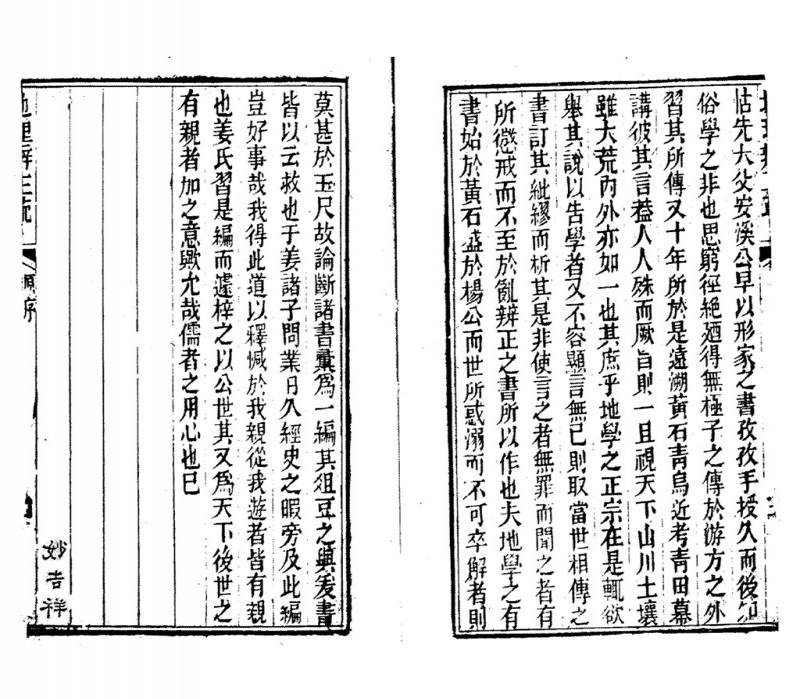 怙先大父安溪公早以形家之書孜孜手授久而後知
俗學之非也思窮徑絕廼得無極子之傳於游方之外
習其所傳又十年所於是遠溯黃石青烏近考青田幕
講彼其言葢人人殊而厥旨則一且視天下山川土壤
雖大荒內外亦如一也其庶乎地學之正宗在是輒欲
舉其說以告學者又不容顯言無已則取當世相傳之
書訂其紕繆而析其是非使言之者無罪而聞之者有
所懲戒而不至於亂辨正之書所以作也夫地學之有
書始於黃石盛於楊公而世所惑溺而不可卒解者則
莫甚於玉尺故論斷諸書彙爲一編其俎豆之與爰書
皆以云救也于姜諸子問業日久經史之暇旁及此編
豈好事哉我得此道以釋憾於我親從我遊者皆有親
也姜氏習是編而遽梓之以公世其又爲天下後世之
有親者加之意歟允哉儒者之用心也已
地理辨正疏
原序
妙吉祥